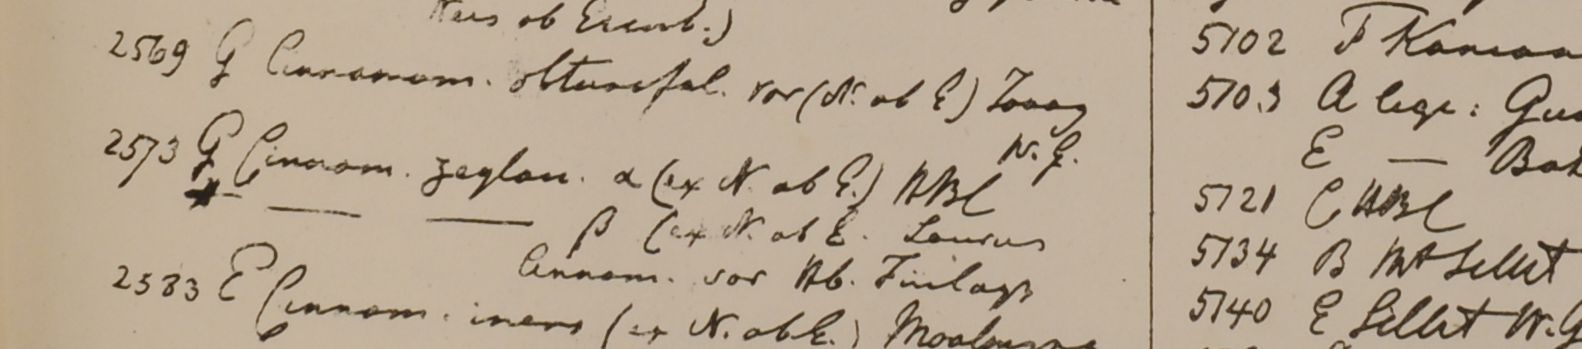 Nees ob Esenb.)
2569 G Cinnamom. obtusifol. var (N. ab E) Tavoy
W. G.
2573 G Cinnam. zeylan. α (ex N. ab E.) HBC
— — β (ex N. ab E. Laurus
Cinnam. var Hb. Finlays
2583 E Cinnam. iners (ex N. ab E.) Moalmyne
5102 F Kamaon
5103 A lege: Gua
E —
5121 C HBC
5134 B Mt Sillet
5140 E Sillet W. G